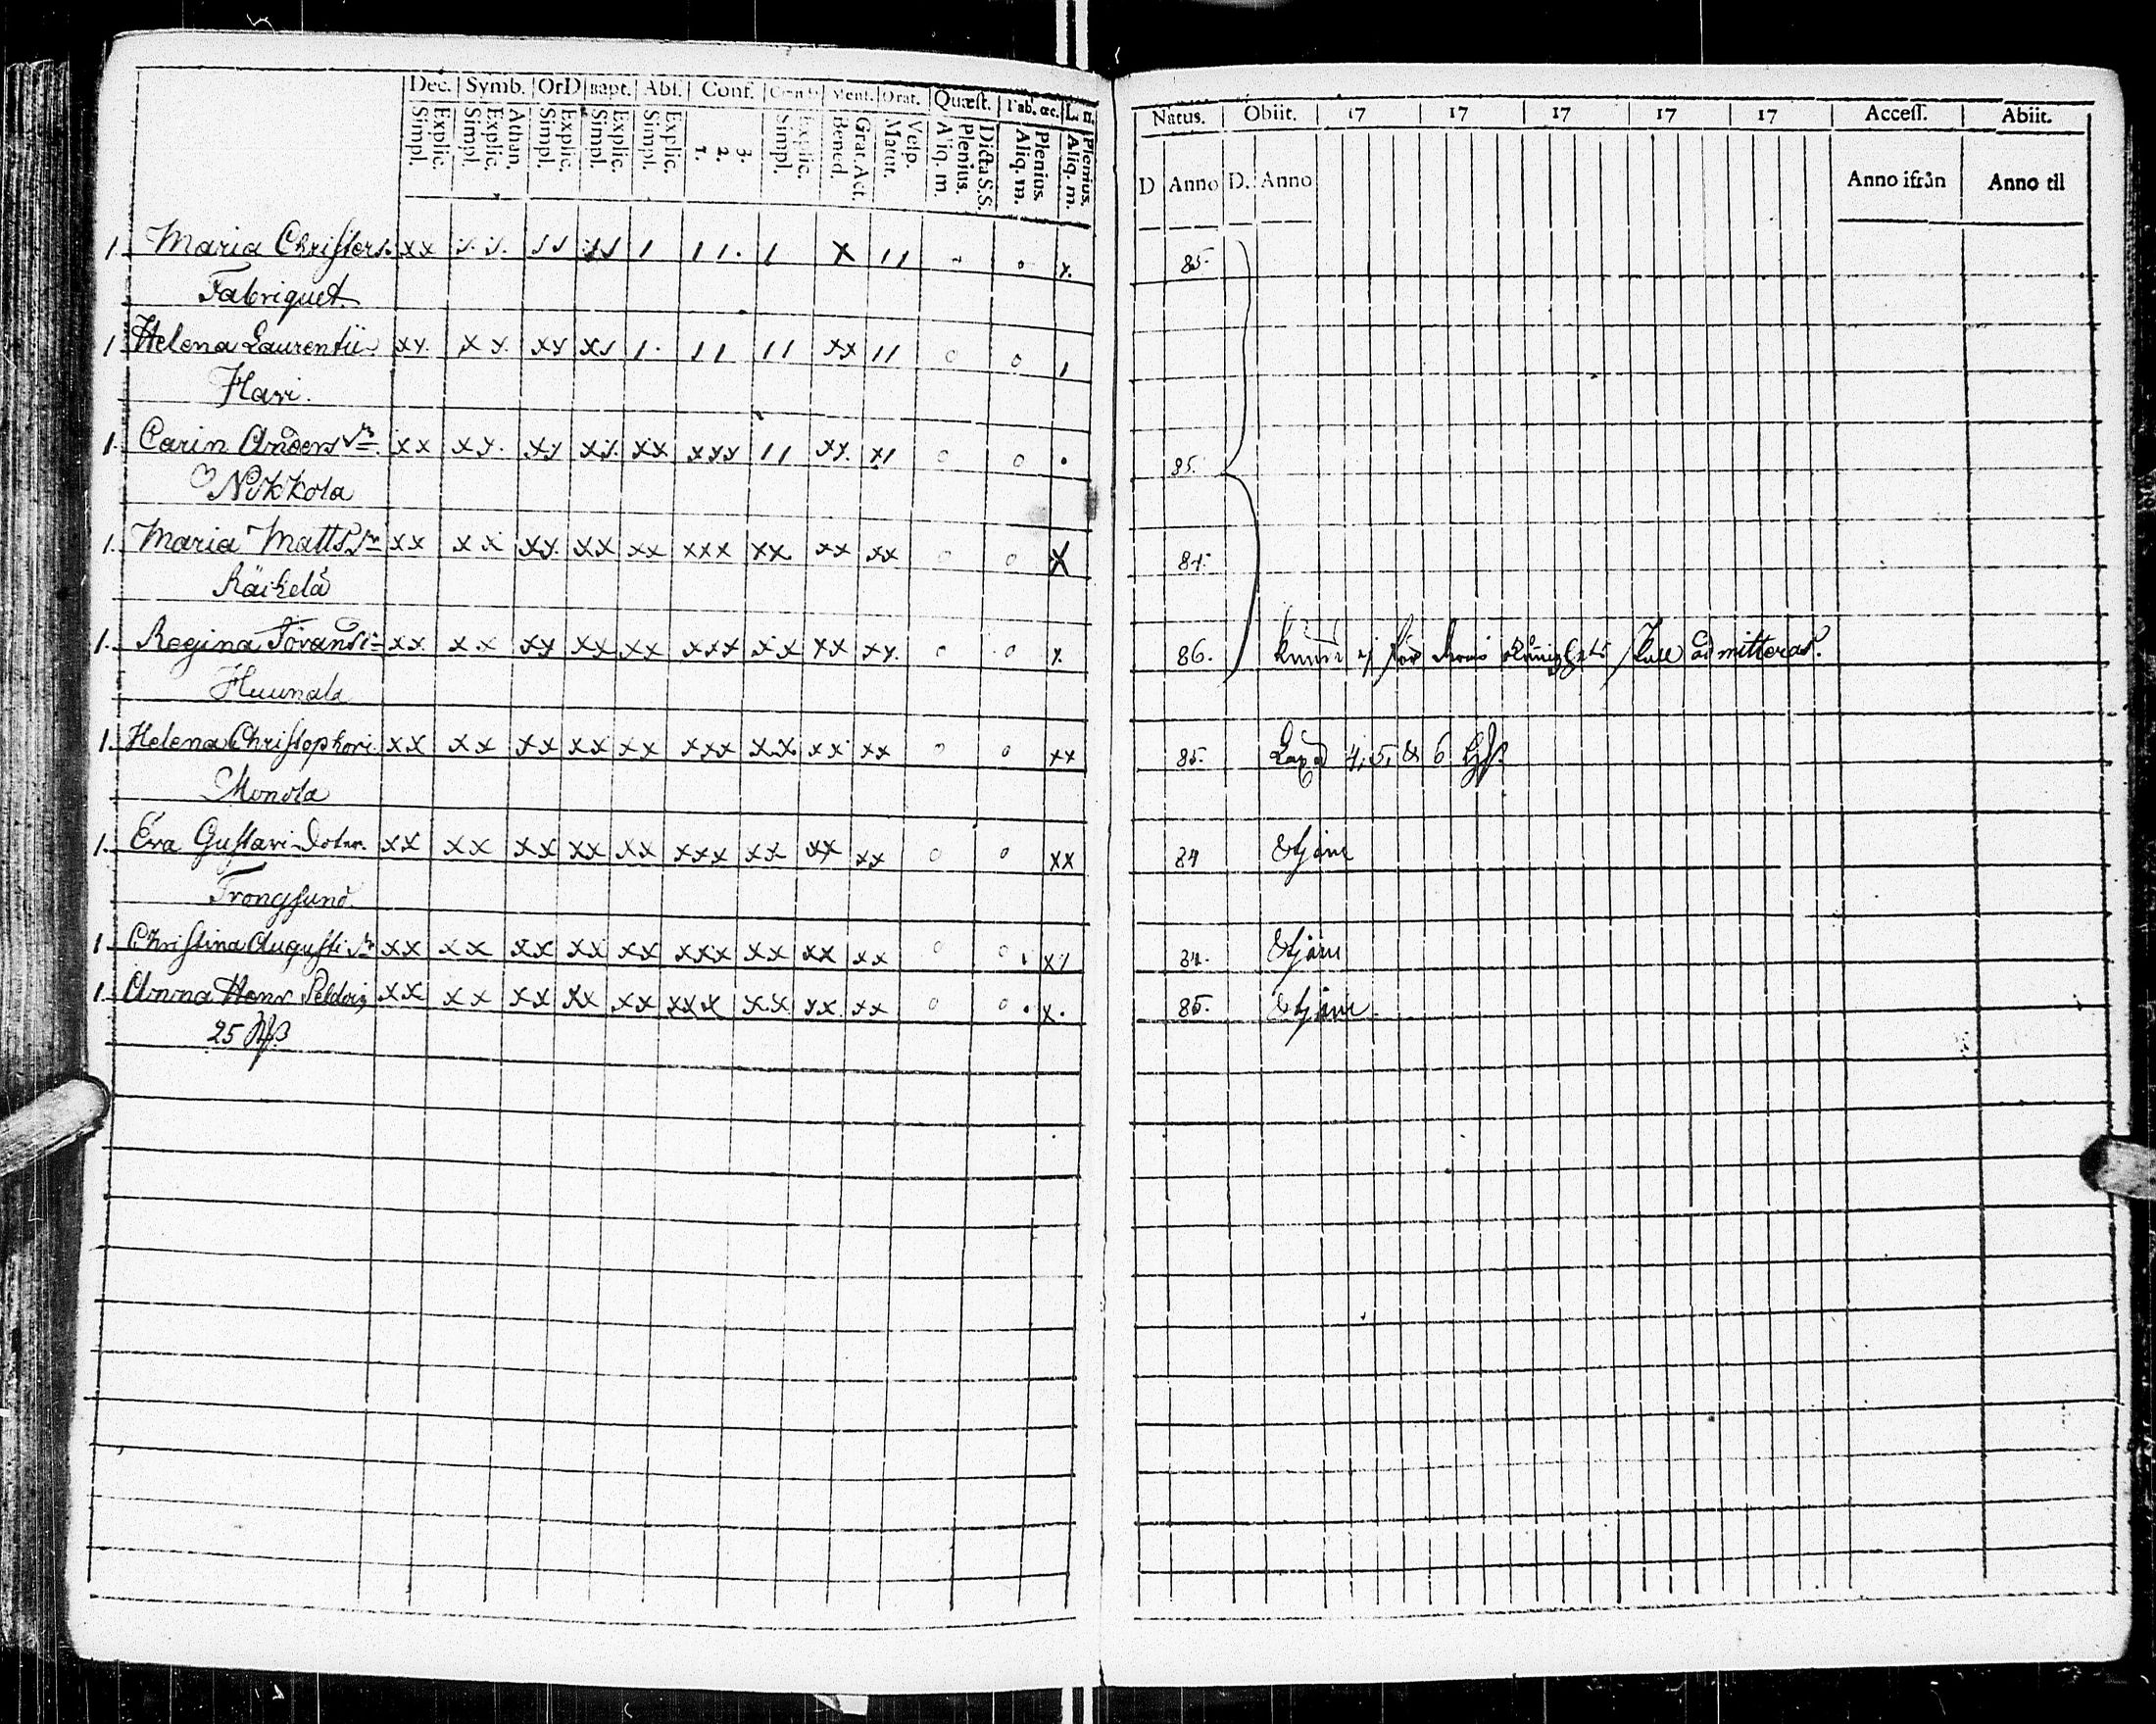 Dec. Symb. OrD Bapt. Abs. Conf. Ment. Orat. Quæst. Tab. œc. L. n.
Explic. Simpl. Athan. Explic. Simpl. Explic. Simpl. Explic. Simpl. Explic. Simpl. 3. 2. 1. Explic. Simpl. Grat. Act. Bened. Vesp. Matut. Dicta S.S. Plenius. Aliq. m. Plenius. Aliq. m. Plenius. Aliq. m.
1. Maria Christers. xx // // // / // . / x // x.
Fabriquet.
1 Helena Laurentii xx. xx. xx xx / . // // xx // o o /
Hari.
1. Carin Anders xx xx. xx xx. xx xxx // xx. x/ o o .
Nokkola
1. Maria Matts xx xx xx. xx xx xxx xx xx xx o o x
Räikelä
1. Regina xx. xx xx xx xx xxx xx xx xx. o o x.
Huunala
1. Helena Christophori xx xx xx xx xx xxx xx xx xx o o xx
Monola
1. Eva Gustavi Doter. xx xx xx xx xx xxx xx xx xx o o xx
Trongsund
1 Christina Augusti xx xx xx xx xx xxx xx xx xx o o x/
1. Anna Henr xx xx xx xx xx xxx xx xx xx o o . x.
25
Natus. Obiit. 17 17 17 17 17 Access. Abiit.
D Anno D. Anno Anno ifrån Anno til
85.
85.
84.
86. ej för admitteras.
85. 4, 5, & 6
84
84.
85.